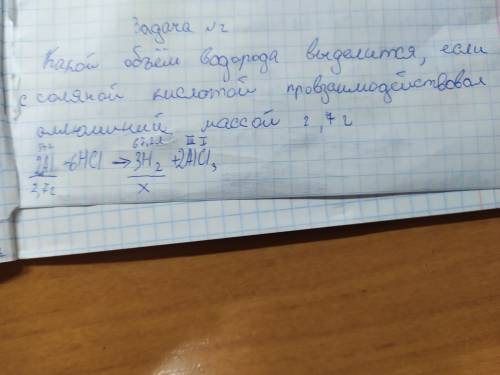 Задача №2
Какой объём водорода выделится, если
с соляной кислотой провзаимодействовал
аллюминий массой 2,7 г
67,2л III I
2Al+6HCl → 3H₂ +2AlCl₃
2,7г x